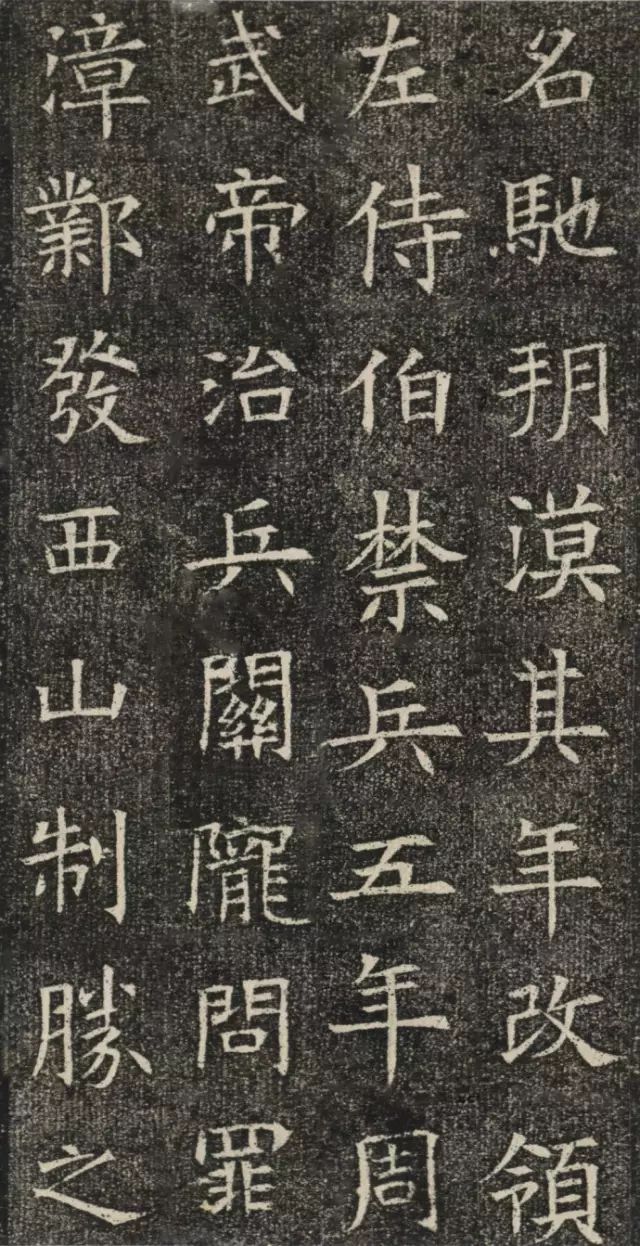 名馳玥漠其年改領
左侍伯禁兵五年周
武帝治兵關隴問罪
漳鄴發西山制勝之